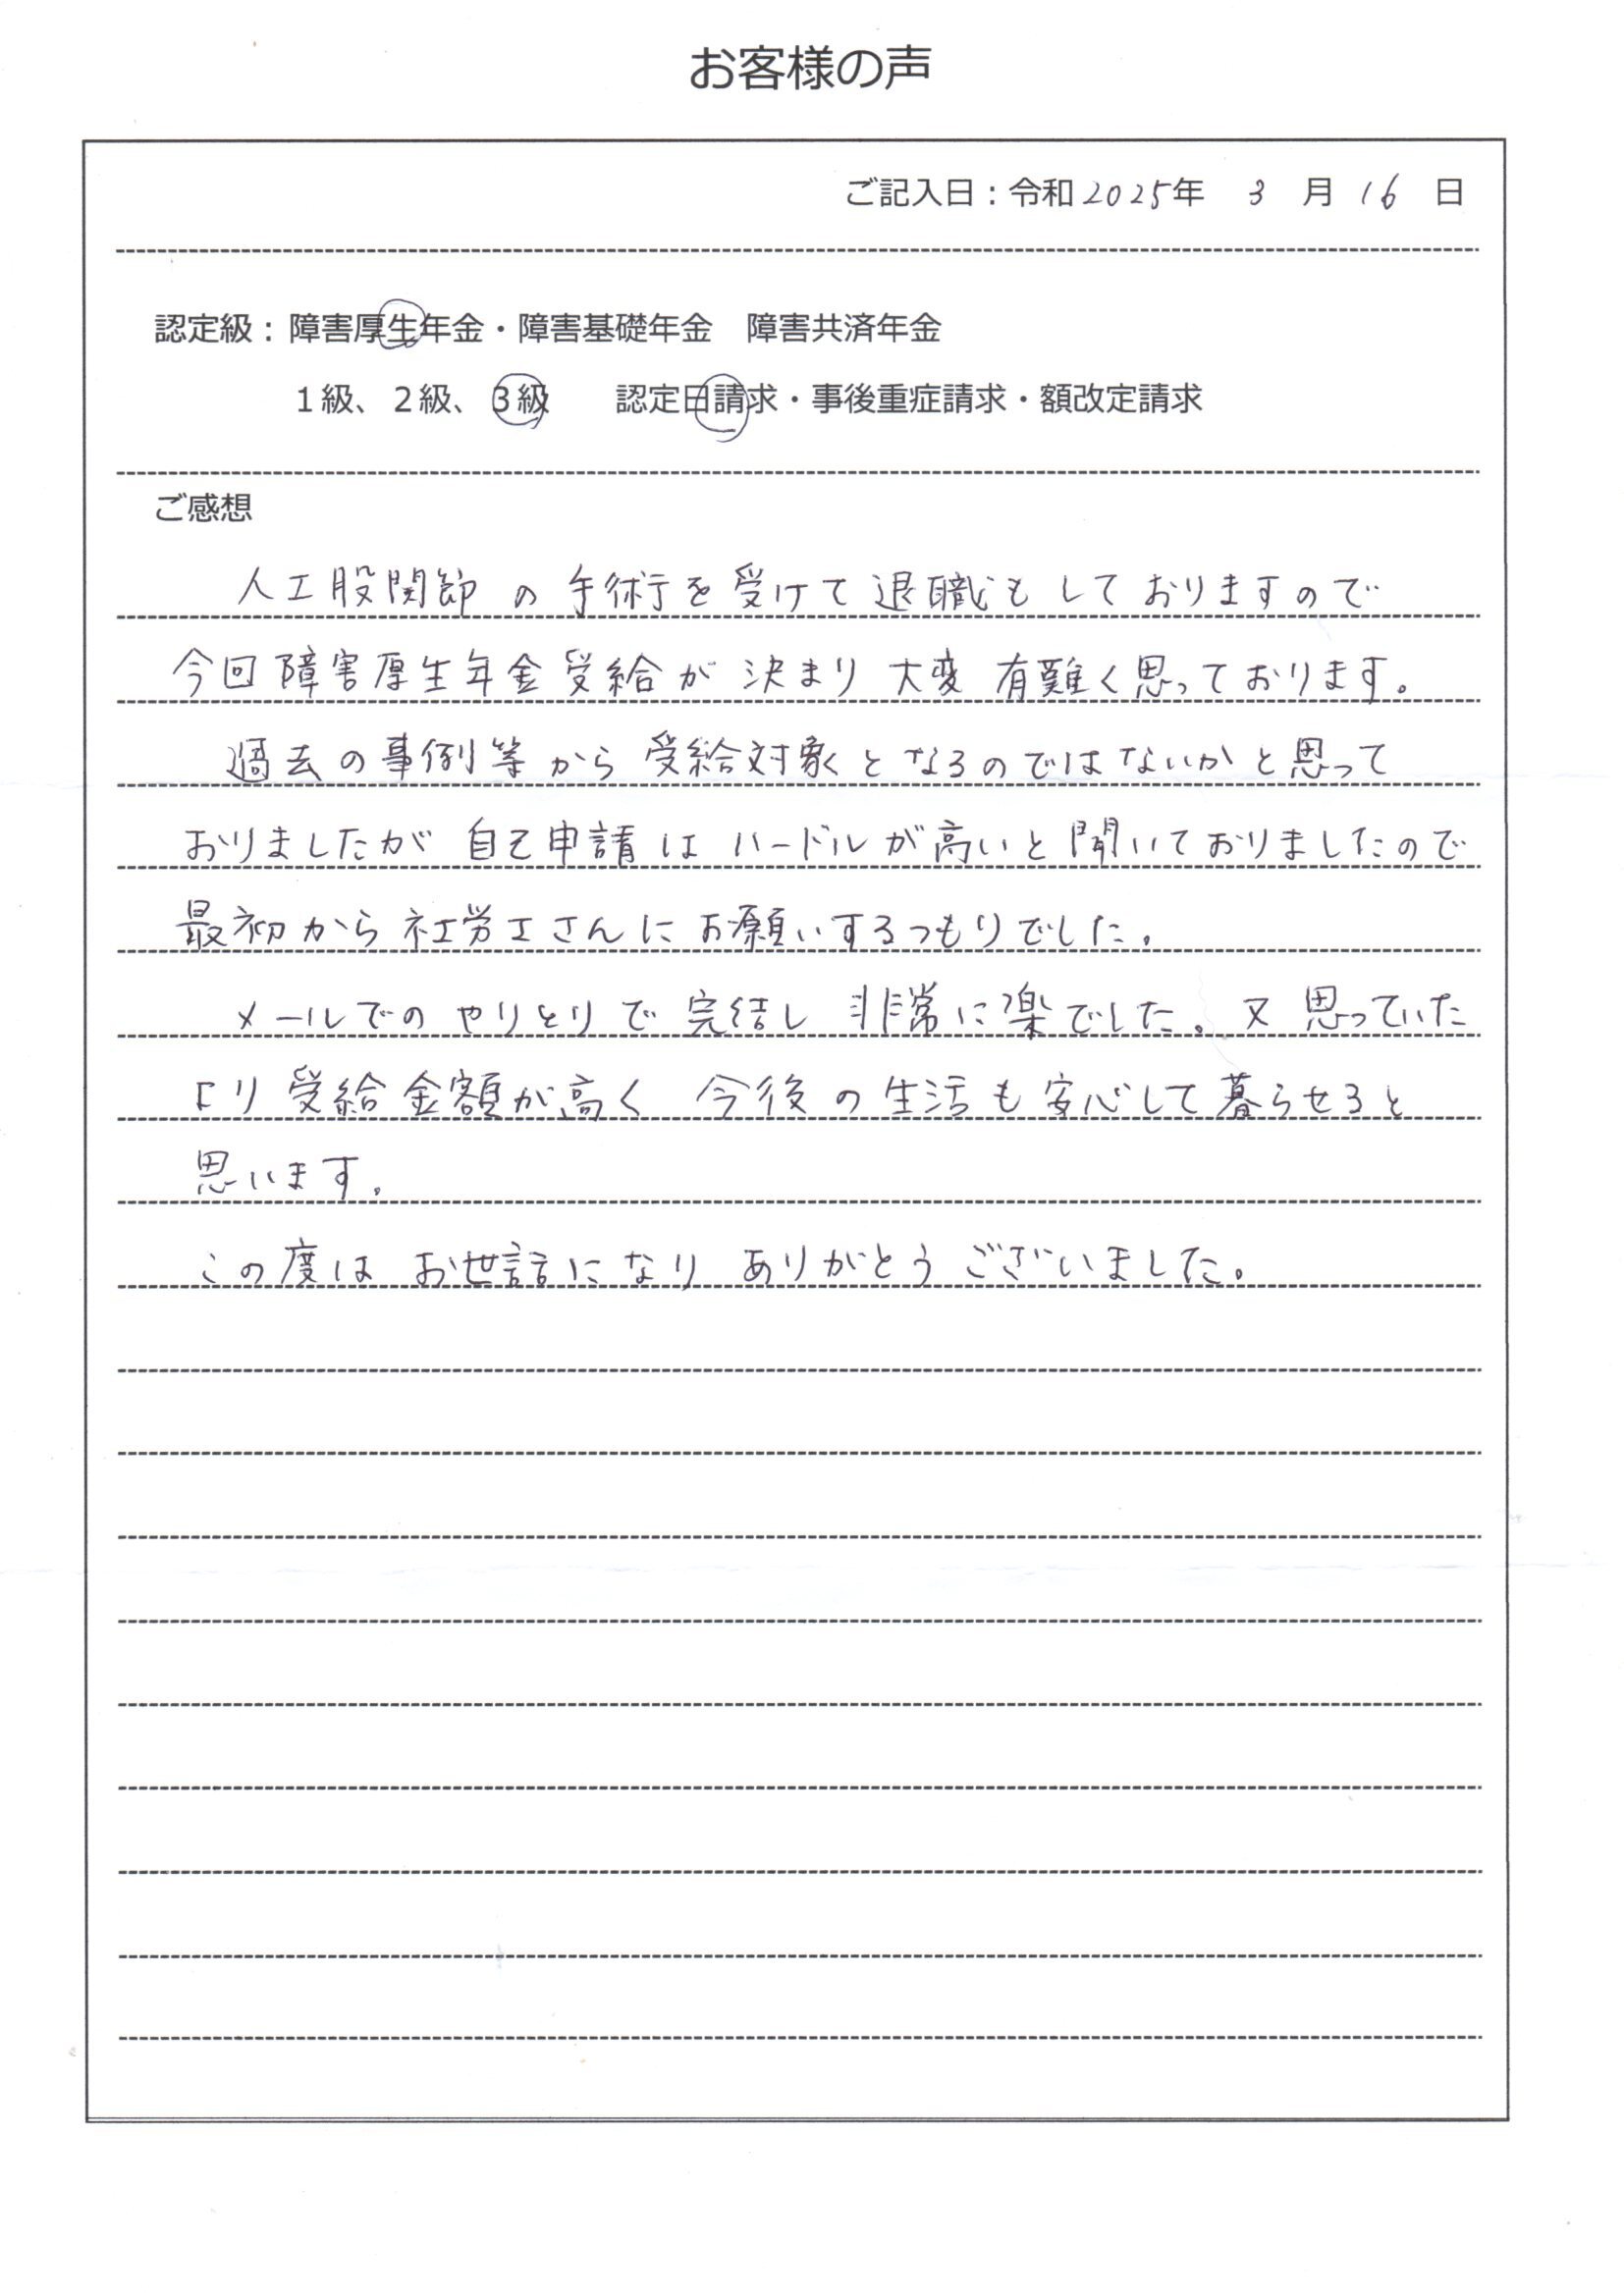 お客様の声
ご記入日：令和2025年 3 月 16 日
認定級：障害厚生年金・障害基礎年金　障害共済年金
１級、２級、３級　　認定日請求・事後重症請求・額改定請求
ご感想
人工股関節の手術を受けて退職もしておりますので
今回障害厚生年金受給が決まり大変有難く思っております。
過去の事例等から受給対象となるのではないかと思って
おりましたが自己申請はハードルが高いと聞いておりましたので
最初から社労士さんにお願いするつもりでした。
メールでのやりとりで完結し非常に楽でした。又思っていた
より受給金額が高く今後の生活も安心して暮らせると
思います。
この度はお世話になりありがとうございました。